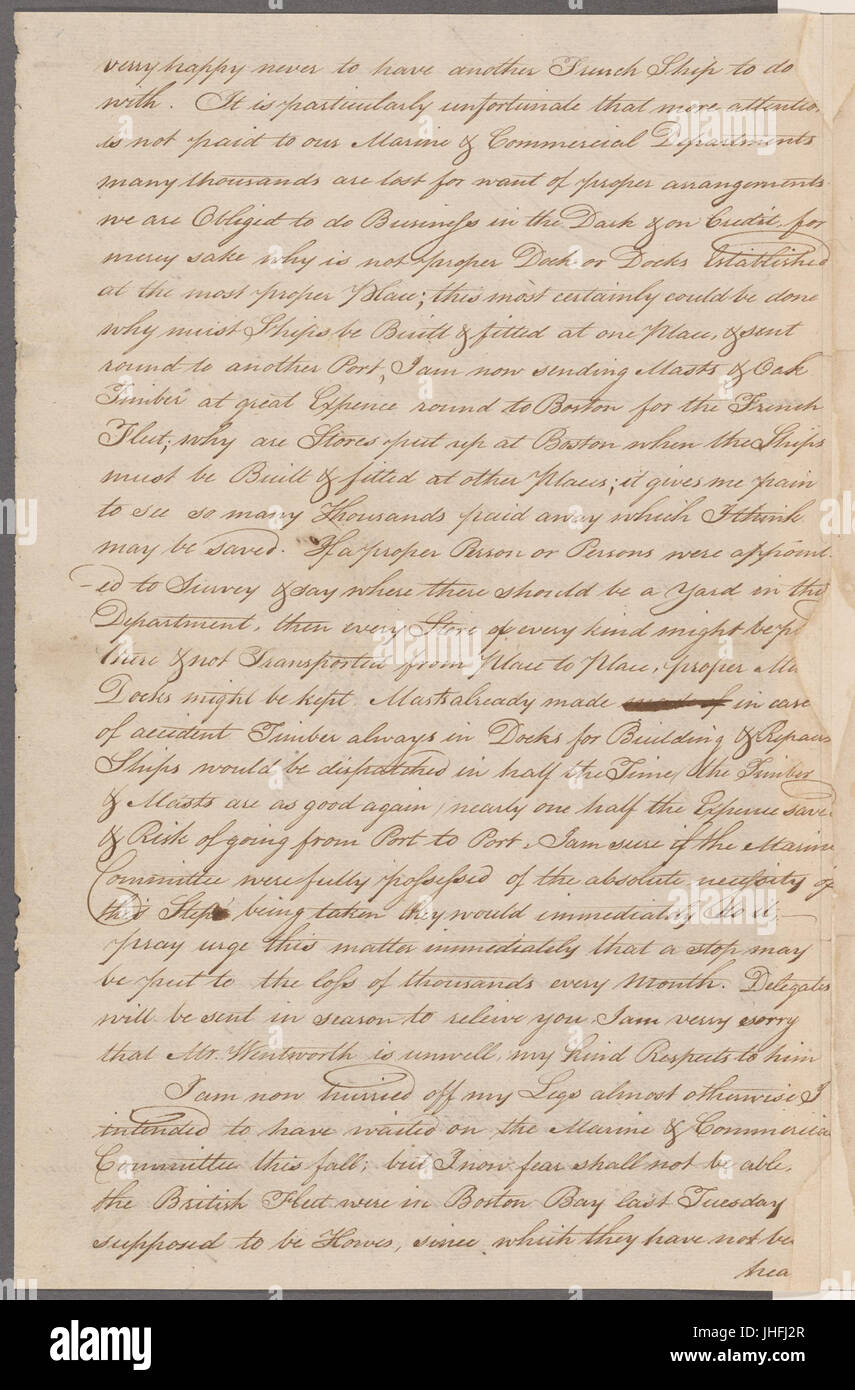 verry happy never to have another French Ship to do
with. It is particularly unfortunate that more attentio
is not paid to our Marine & Commercial Departments
many thousands are lost for want of proper arrangements
we are Obliged to do Business in the Dark & on Credit, for
mercy sake why is not proper Dock or Docks Established
at the most proper Place; this most certainly could be done
why must Ships be Built & fitted at one Place, & sent
round to another Port, I am now sending Masts & Oak
Timber at great Expence round to Boston for the French
Fleet; why are Stores put up at Boston when the Ships
must be Built & fitted at other Places; it gives me pain
to see so many Thousands paid away which I think
may be saved. If a proper Person or Persons were appoint
-ed to Survey & say where there should be a Yard in the
Department, then every Store of every kind might be p
there & not Transported from Place to Place, proper Ma
Docks might be kept Masts already made in case
of accident Timber always in Docks for Building & Repairs
Ships would be dispatched in half the Time, the Timber
& Masts are as good again, nearly one half the Expence save
& Risk of going from Port to Port, I am sure if the Marine
Committee were fully possessed of the absolute necessity of
this Step being taken they would immediately do it,—
pray urge this matter immediately that a stop may
be put to the loss of thousands every Month. Delegates
will be sent in season to releive you I am verry sorry
that Mr. Wentworth is unwell, my kind Respects to him
I am now hurried off my Legs almost otherwise I
intended to have waited on the Marine & Commercia
Committee this fall; but I now fear shall not be able,
the British Fleet were in Boston Bay last Tuesday
supposed to be Howes, since which they have not be
hea
alamy
Image ID: JHFJ2R
www.alamy.com